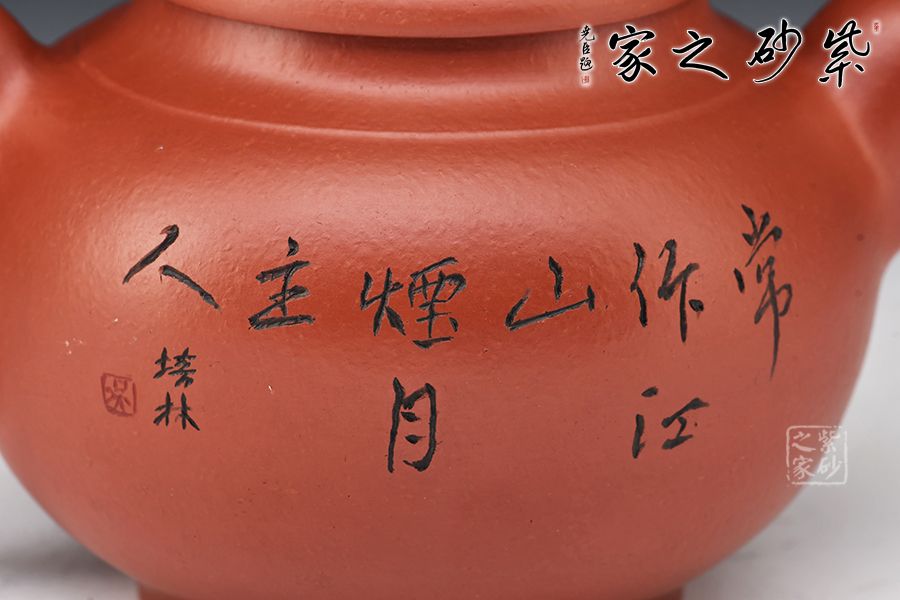 紫砂之家
堯臣題
常
作江
山
煙月
主
人
塔林
紫砂
之家